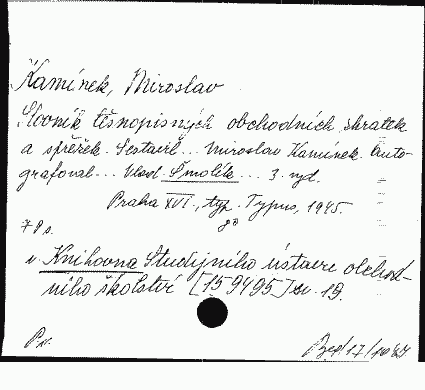 Kamínek, Miroslav
Slovník těsnopisných obchodních zkratek
a spřežek. Sestavil... Miroslav Kamínek. Auto-
grafoval... Vlad. Smolík... 3. vyd.
Praha XVI., typ. Typus, 1945.
79 s.
v. Knihovna Studijního ústavu obchod-
ního školství [159495] sv. 19.
Př.